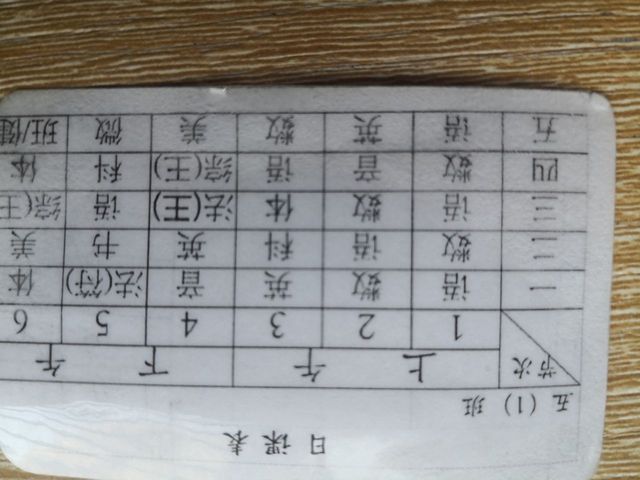 日 课 表
五（1） 班
节次 上 午 下 午
1 2 3 4 5 6
一 语 数 英 音 法(符) 体
二 数 语 科 英 书 美
三 语 数 体 法(王) 语 综(王
四 数 音 语 综(王) 科 体
五 语 英 数 美 微 班/健